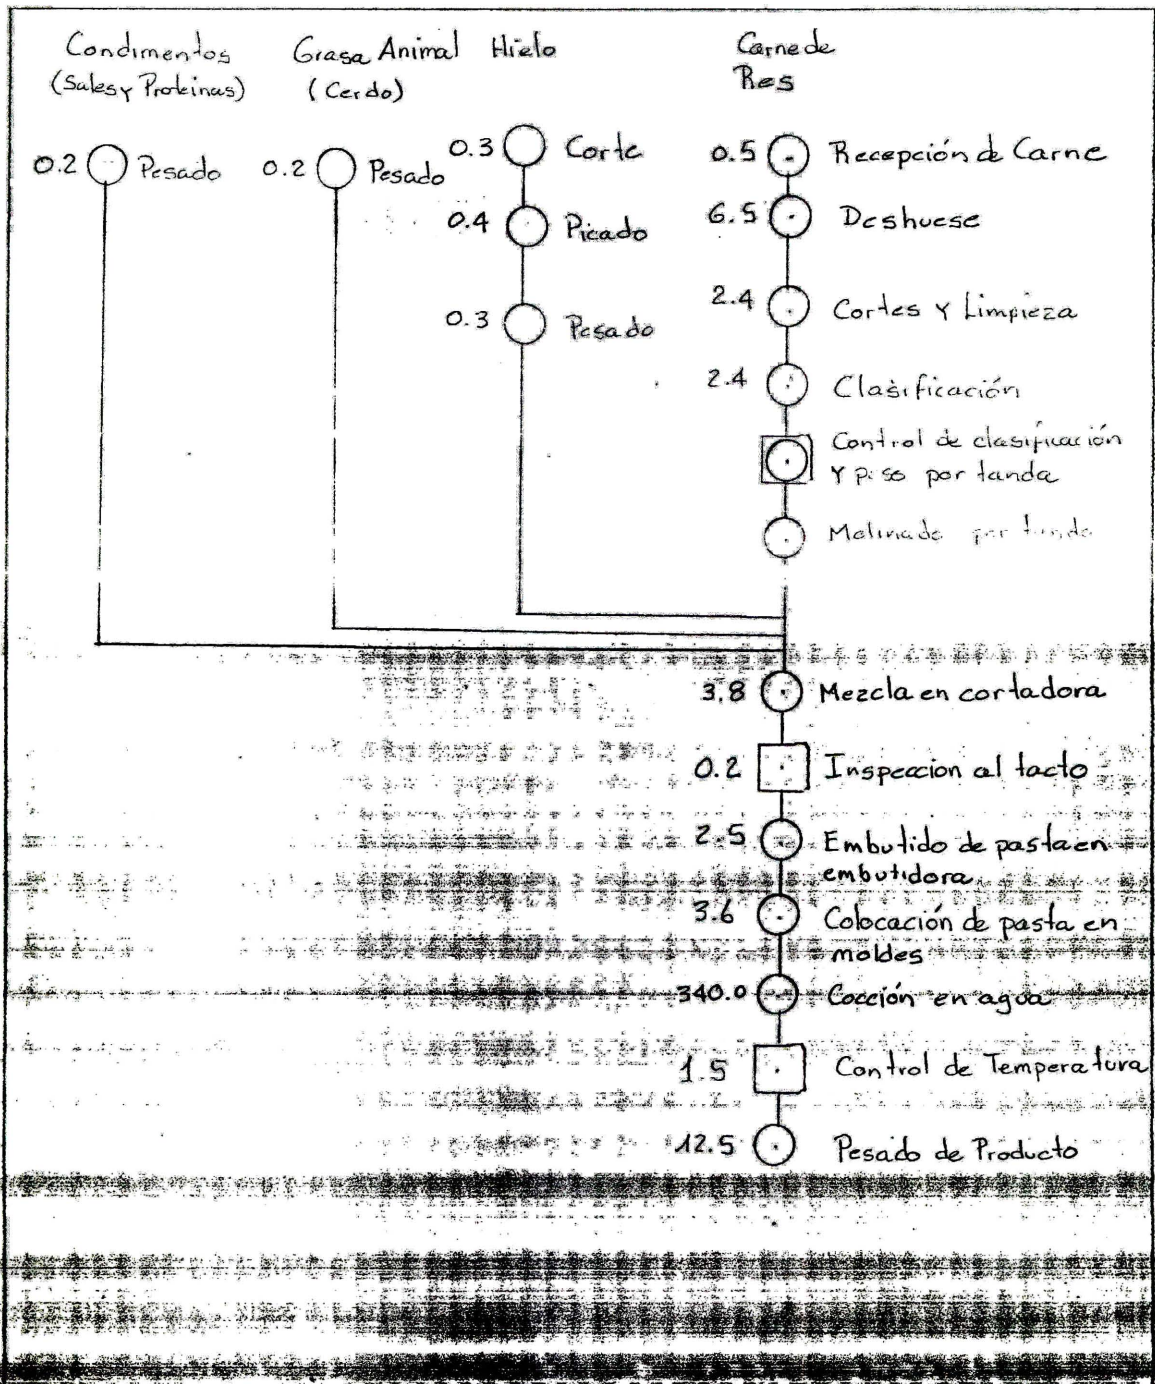 Condimentos
(Sales y Proteinas)
Grasa Animal
(Cerdo)
Hielo
Carne de
Res
0.2 Pesado
0.2 Pesado
0.3 Corte
0.4 Picado
0.3 Pesado
0.5 Recepción de Carne
6.5 Deshuese
2.4 Cortes y Limpieza
2.4 Clasificación
Control de clasificación
y peso por tanda
Molinado por tanda
3.8 Mezcla en cortadora
0.2 Inspeccion al tacto
2.5 Embutido de pasta en
embutidora
3.6 Colocación de pasta en
moldes
340.0 Cocción en agua
1.5 Control de Temperatura
12.5 Pesado de Producto